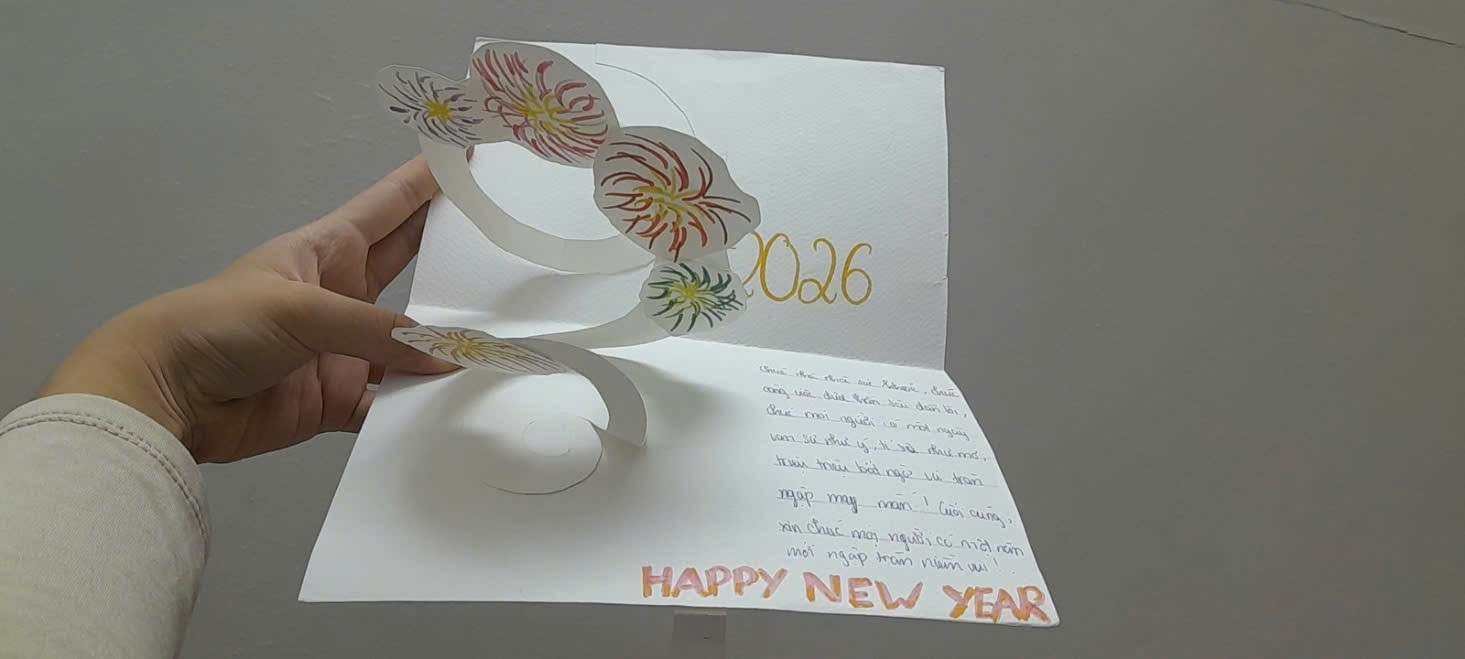 2026
Chúc nhà nhà sức khoẻ, chúc
công việc được thần tài dẫn lối,
chúc mọi người có một ngày
vạn sự như ý, tỉ sự như mơ,
triệu triệu bất ngờ và tràn
ngập may mắn! Cuối cùng,
xin chúc mọi người có một năm
mới ngập tràn niềm vui!
HAPPY NEW YEAR